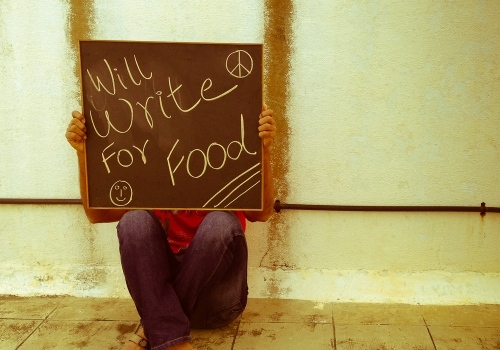 Will
Write
For Food